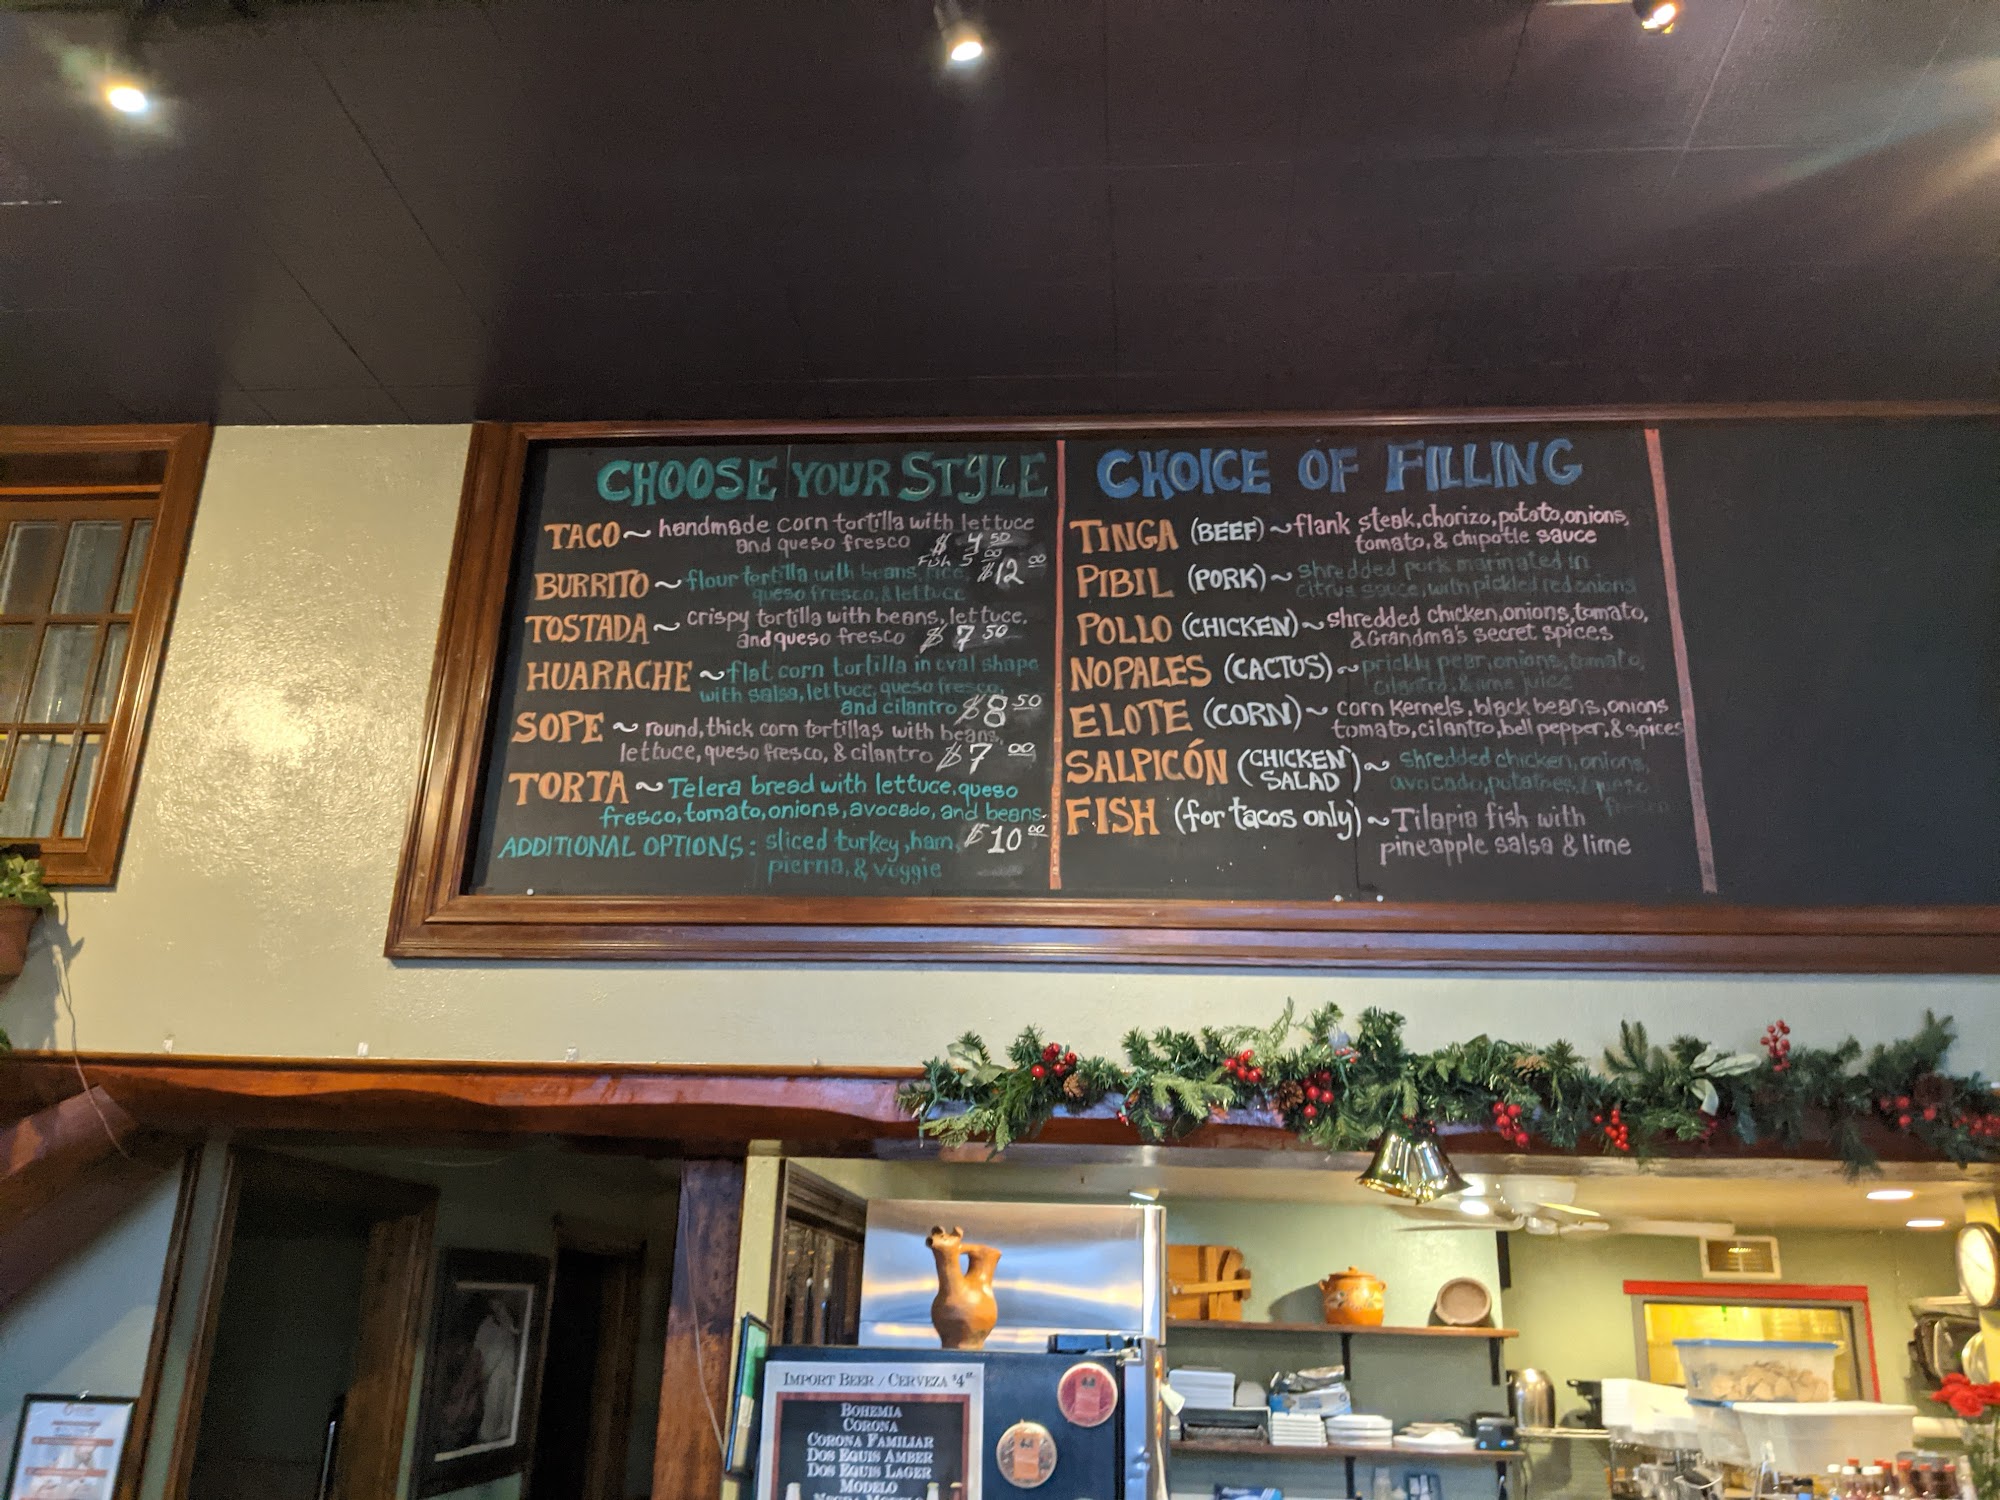 CHOOSE YOUR STYLE
TACO ~ handmade corn tortilla with lettuce
and queso fresco $ 4 50
Fish 5 00
BURRITO ~ flour tortilla with beans, rice, $12 00
queso fresco, & lettuce
TOSTADA ~ crispy tortilla with beans, lettuce,
and queso fresco $ 7 50
HUARACHE ~ flat corn tortilla in oval shape
with salsa, lettuce, queso fresco,
and cilantro $8 50
SOPE ~ round, thick corn tortillas with beans,
lettuce, queso fresco, & cilantro $7 00
TORTA ~ Telera bread with lettuce, queso
fresco, tomato, onions, avocado, and beans.
ADDITIONAL OPTIONS: sliced turkey, ham, $10 00
pierna, & veggie
CHOICE OF FILLING
TINGA (BEEF) ~ flank steak, chorizo, potato, onions,
tomato, & chipotle sauce
PIBIL (PORK) ~ shredded pork marinated in
citrus sauce, with pickled red onions
POLLO (CHICKEN) ~ shredded chicken, onions, tomato,
& Grandma's secret spices
NOPALES (CACTUS) ~ prickly pear, onions, tomato,
cilantro, & lime juice
ELOTE (CORN) ~ corn kernels, black beans, onions
tomato, cilantro, bell pepper, & spices
SALPICÓN (CHICKEN SALAD) ~ shredded chicken, onions,
avocado, potatoes, & queso
fresco
FISH (for tacos only) ~ Tilapia fish with
pineapple salsa & lime
IMPORT BEER / CERVEZA $4
BOHEMIA
CORONA
CORONA FAMILIAR
DOS EQUIS AMBER
DOS EQUIS LAGER
MODELO